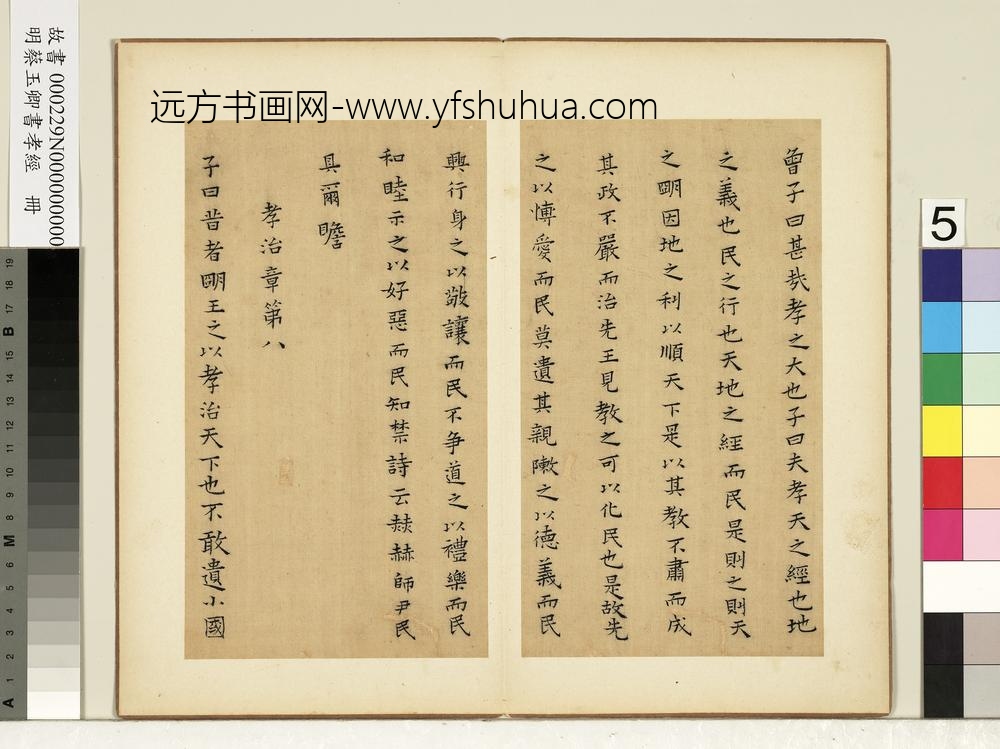 远方书画网-www.yfshuhua.com
曾子曰甚㢤孝之大也子曰夫孝天之經也地
之義也民之行也天地之經而民是則之則天
之明因地之利以順天下是以其教不肅而成
其政不嚴而治先王見教之可以化民也是故先
之以博愛而民莫遺其親陳之以德義而民
興行身之以敬讓而民不争道之以禮樂而民
和睦示之以好惡而民知禁詩云赫赫師尹民
具爾瞻
孝治章第八
子曰昔者明王之以孝治天下也不敢遺小國
故書 000229N000000000
明蔡玉卿書孝經 冊
5
A 1 2 3 4 5 6 M 8 9 10 11 12 13 14 15 B 17 18 19